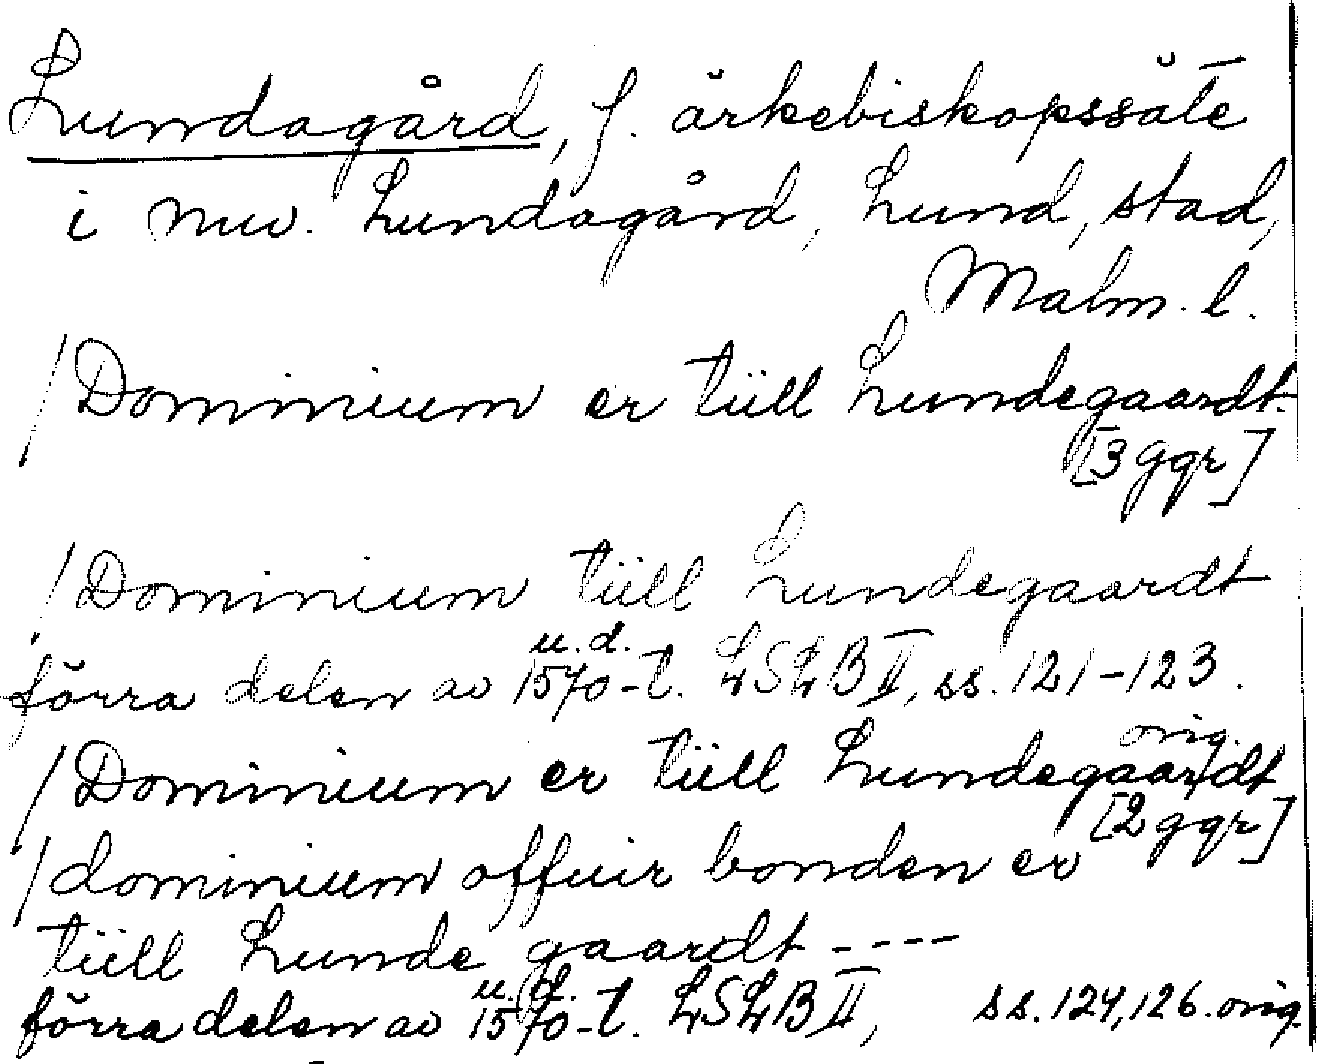 Lundagård, f. ärkebiskopssäte
i nuv. Lundagård, Lund, stad,
Malm. l.
/Dominium er tiill Lundegaardt.
[3 ggr]
/Dominium tiill Lundegaardt
u. d.
förra delen av 1570-t. LSLB II, ss. 121-123.
orig.
/Dominium er tiill Lundegaardt
[2 ggr]
/dominium offuir bonden er
tiill Lunde gaardt ----
u. d.
förra delen av 1570-t. LSLB II, ss. 124, 126. orig.